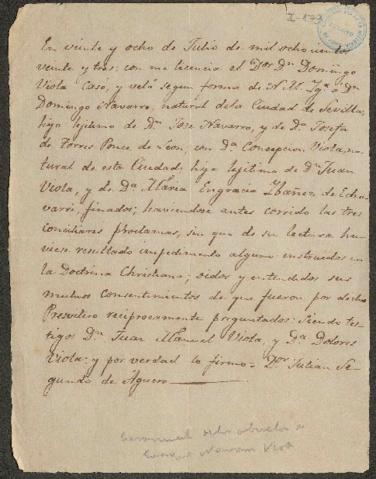 I-173
En veinte y ocho de Julio de mil ochocientos
veinte y tres: con mi licencia el Dor Dn Domingo
Viola Casó, y veló segun forma de N. M. Yga á Dn
Domingo Navarro, natural dela Ciudad de Sevilla,
hijo lejitimo de Dn Jose Navarro, y de Da Josefa
de Torres Ponce de Leon, con Da Concepcion Viola, na-
tural de esta Ciudad: hija lejitima de Dn Juan
Viola, y de Da Maria Engracia Ybañez de Echa-
varri, finados; haviendose antes corrido las tres
conciliares proclamas, sin que de su lectura hu-
viese resultado impedimento alguno: instruidos en
la Doctrina Christiana; oidos y entendidos sus
mutuos consentimientos de que fueron por dicho
Presvitero reciprocamente preguntados: Siendo tes-
tigos Dn Juan Manuel Viola, y Da Dolores
Viola: y por verdad lo firmo = Dor Julian Se-
gundo de Agüero
abuelos
Viola